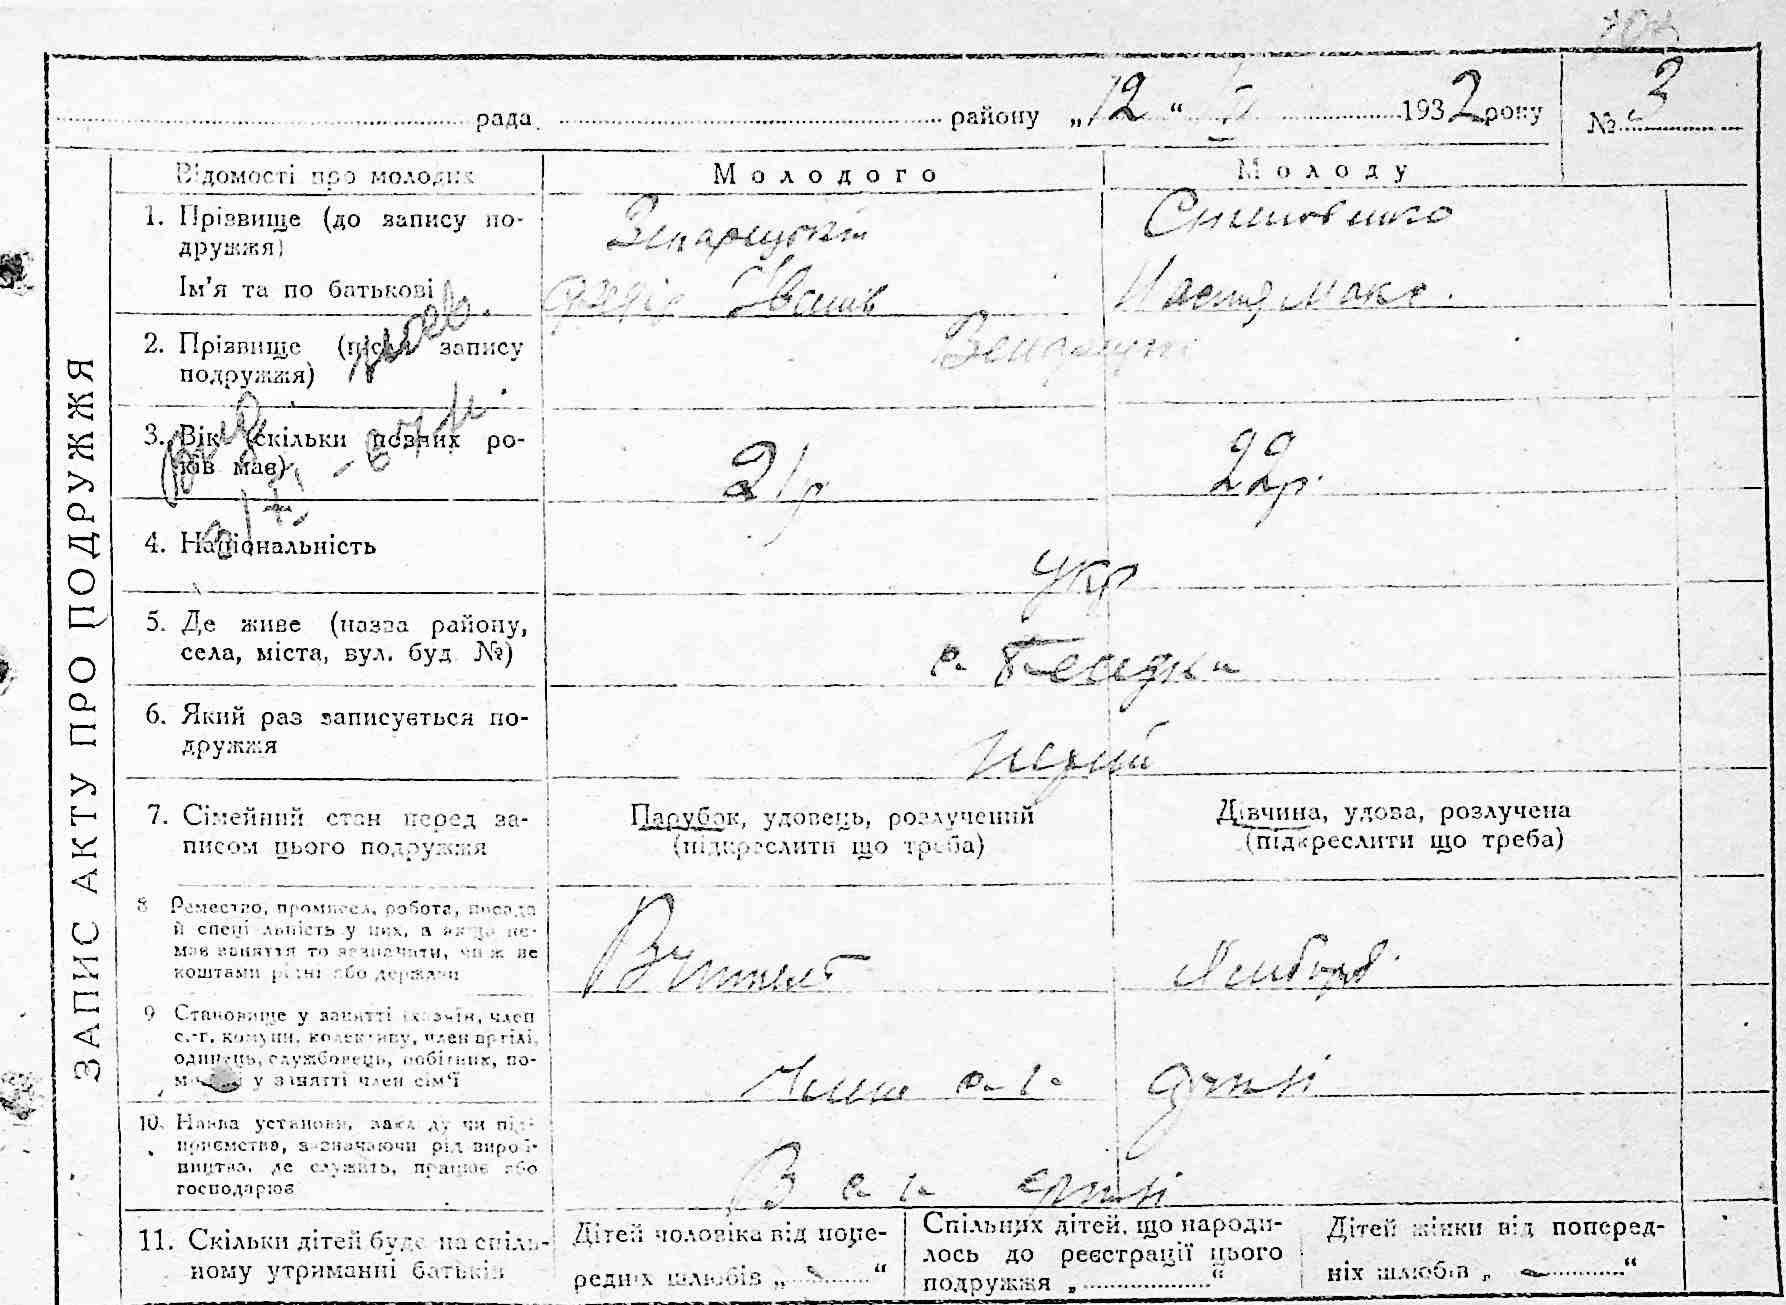 рада району „12“ 1932 року № 3
ЗАПИС АКТУ ПРО ПОДРУЖЖЯ
Відомості про молодих
Молодого
Молоду
1. Прізвище (до запису по-
дружжя)
Ім'я та по батькові
Федір Іванів
Настя Макс.
2. Прізвище (після запису
подружжя)
3. Вік (скільки повних ро-
ків має)
21р
22р.
4. Національність
укр
5. Де живе (назва району,
села, міста, вул. буд №)
с.
6. Який раз записується по-
дружжя
7. Сімейний стан перед за-
писом цього подружжя
Парубок, удовець, розлучений
(підкреслити що треба)
Дівчина, удова, розлучена
(підкреслити що треба)
8 Ремество, промисел, робота, посада
й спеціальність у них, а якщо не-
має заняття то зазначити, чи ж не
коштами рідні або держави
Вчитель
9 Становище у занятті (хазяїн, член
с.-г. комуни, колективу, член артілі,
одинець, службовець, робітник, по-
у занятті член сім'ї
Член с. г. артілі
10. Назва установи, закладу чи підп-
риємства, зазначаючи рід вироб-
ництва, де служить, працює або
господарює
В с. г. артілі
11. Скільки дітей буде на спіль-
ному утриманні батьків
Дітей чоловіка від попе-
редніх шлюбів „ “
Спільних дітей, що народи-
лось до реєстрації цього
подружжя „ “
Дітей жінки від поперед-
ніх шлюбів „ “